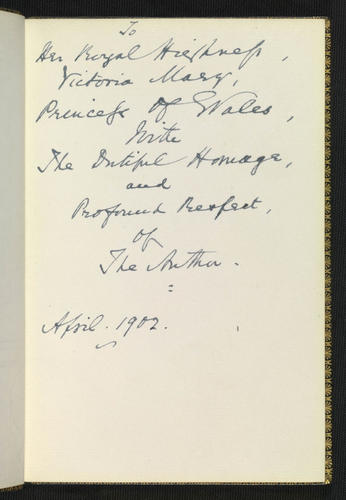 To
Her Royal Highness,
Victoria Mary,
Princess of Wales,
With
The Dutiful Homage,
and
Profound Respect,
of
The Author.
April. 1902.